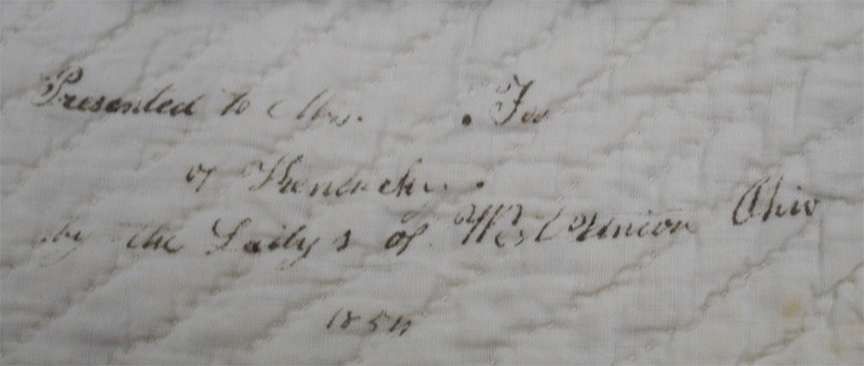 Presented to Mrs.
of Kentucky.
by the Ladys of West Union Ohio
1854